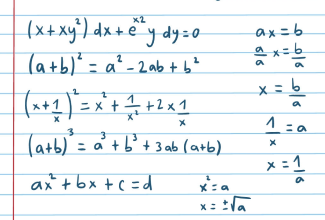 (x+xy²) dx + e^x² y dy = 0
(a+b)² = a² - 2ab + b²
(x + 1/x)² = x² + 1/x² + 2x 1/x
(a+b)³ = a³ + b³ + 3ab (a+b)
ax² + bx + c = d
ax = b
a/a x = b/a
x = b/a
1/x = a
x = 1/a
x² = a
x = ±√a